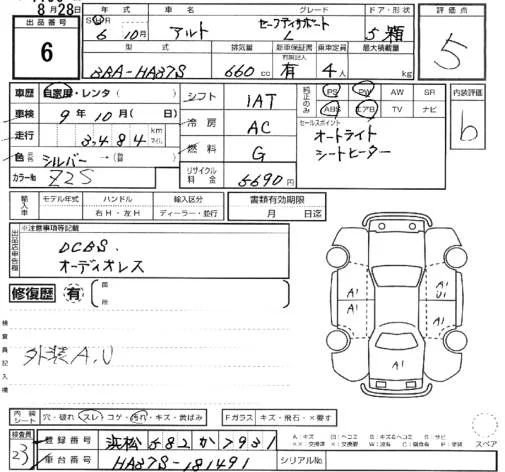 8月28日
出品番号 6
年式 車名 グレード ドア・形状
S H R
6年 10月 アルト セーフティサポート L 5 鞄
型式 排気量 新車保証書 乗車定員 最大積載量
3BA-HA37S 660cc 有 4人 kg
評価点
5
車歴 自家用・レンタ
車検 9年10月( 日)
走行 3,484 km マイル
色 シルバー
カラーNo Z2S
シフト 1AT
冷房 AC
燃料 G
リサイクル料金 6690円
純正のみ PS PW AW SR
ABS エアB TV ナビ
セールスポイント
オートライト
シートヒーター
内装評価
b
輸入車 モデル年式 ハンドル 輸入区分
右H・左H ディーラー・並行
書類有効期限
月 日迄
出品店申告欄 ※注意事項等記載
DCBS.
オーディオレス
修復歴 有 箇所
検査員記入欄
外装A,U
A1
A1 A1 U1
A1
A1
内装シート 穴・破れ スレ・コゲ・汚れ・キズ・黄ばみ Fガラス キズ・飛石・×要す
検査員 23
登録番号 浜松 582 か 7931
車台番号 HA37S-181491 シリアルNo.
スペア